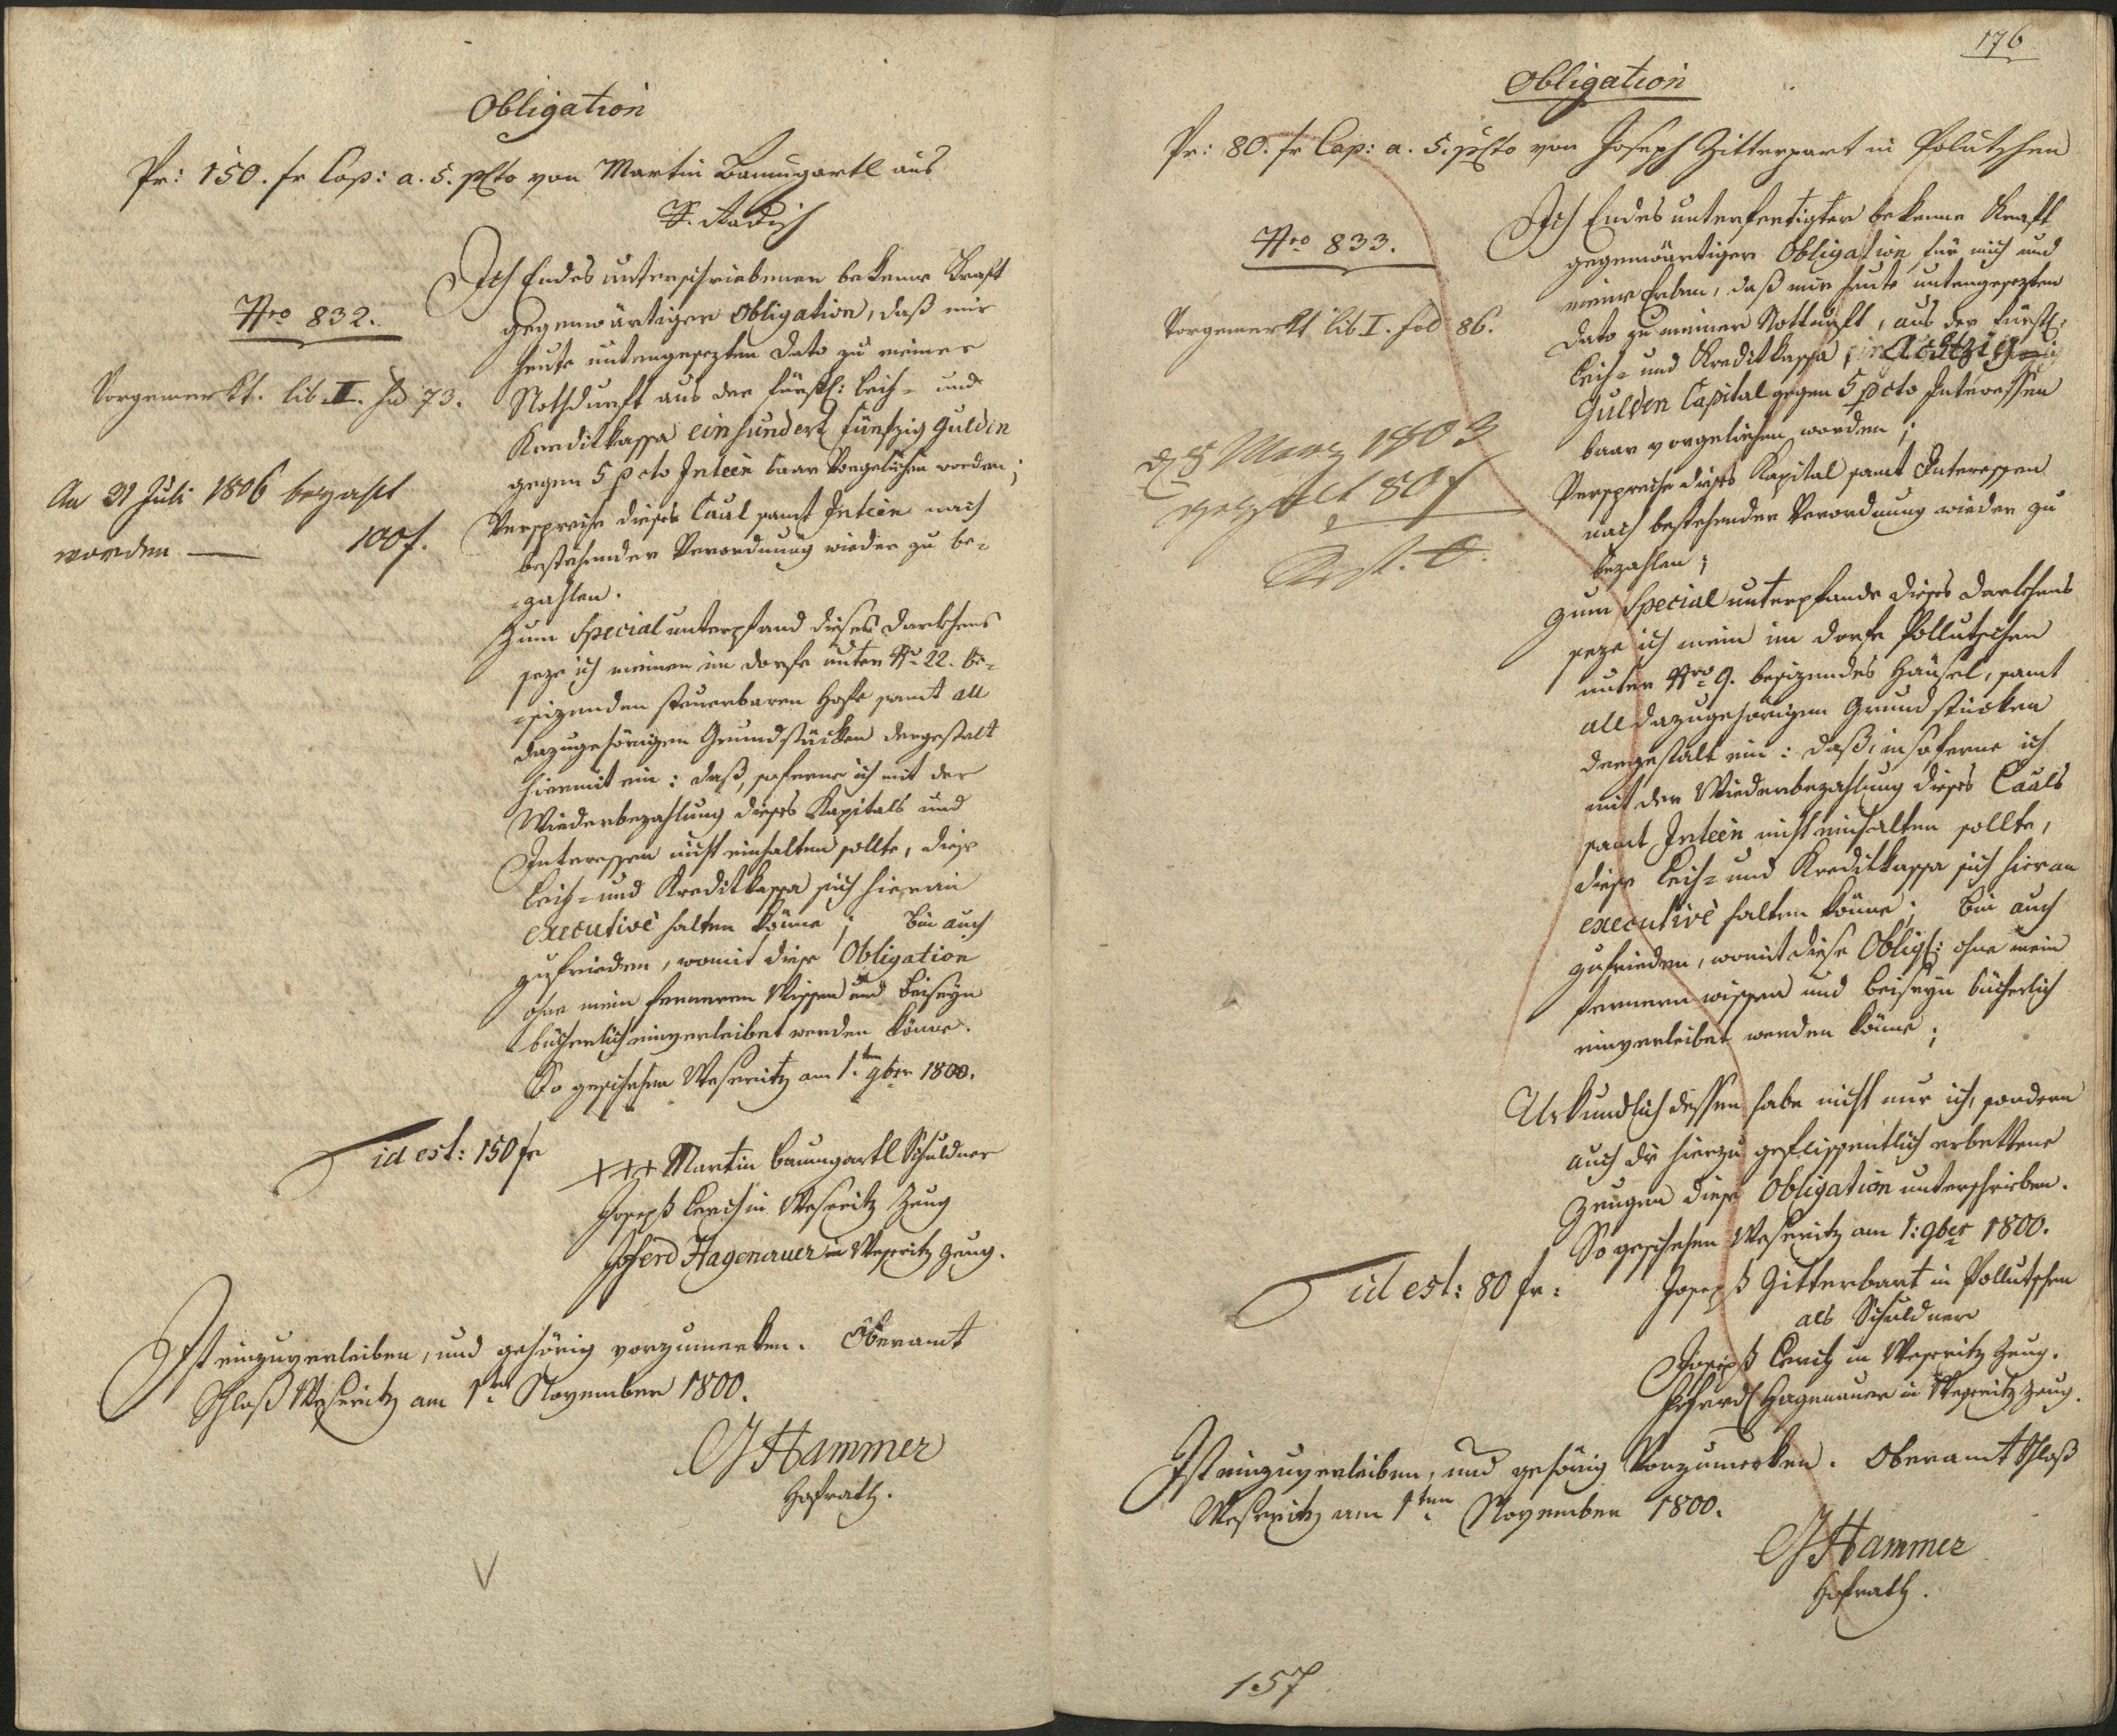 Obligation
Pr: 150. fr Cap: a. 5. pcto von Martin Baumgartl aus
Nro 832.
Vorgemerkt. lib. II. fol 73.
An 31 Juli 1806 bezahlt
worden — 100 f.
Ich Endes unterschriebener bekenne Kraft
gegenwärtiger Obligation, daß mir
heute untengesezten Dato zu meiner
Nothdurft aus der fürstl: Leih- und
Kreditkassa einhundert fünfzig Gulden
gegen 5 pcto Inteen baar vorgeliehen worden;
Verspreche dieses Caal samt Inteen nach
bestehender Verordnung wieder zu be-
-zahlen.
Zum Special unterpfand dieses Darlehens
seze ich meinen im Dorfe unter No 22. be-
-sizenden steuerbaren Hofe samt all
dazugehörigen Grundstücken dergestalt
hiermit ein: daß, soferne ich mit der
Wiederbezahlung dieses Kapitals und
Interessen nicht einhalten sollte, diese
Leih- und Kreditkassa sich hieran
executivè halten könne; bin auch
zufrieden, womit diese Obligation
ohne mein ferneren Wissen und Beiseyn
bücherlich einverleibet werden könne.
So geschehen Weseritz am 1.ten 9ber 1800.
id est: 150 fr
+++ Martin Baumgartl Schuldner
Joseph in Weseritz Zeug
Hagenauer in Weseritz Zeug.
Ist einzuverleiben, und gehörig vorzumerken. Oberamt
Schloß Weseritz am 1ten November 1800.
Hammer
Hofrath.
176
Obligation
Pr: 80. fr Cap: a. 5. pcto von Joseph Zitterpart in Polutschen
Nro 833.
Vorgemerkt lib. I. fol 86.
März 1803
80 f
Ich Endes unterfertigter bekenne Kraft
gegenwärtiger Obligation für mich und
meine Erben, daß mir heute untengesezten
Dato zu meiner Notturft, aus der fürstl:
Leih- und Kreditkassa Achtzig
Gulden Capital gegen 5 pcto Interessen
baar vorgeliehen worden;
Verspreche dieses Kapital samt Interessen
nach bestehender Verordnung wieder zu
bezahlen;
Zum Special unterpfande dieses Darlehens
seze ich mein im Dorfe Pollutschen
unter Nro 9. besizendes Häusel, samt
all dazugehörigen Grundstücken
dergestalt ein: daß, insoferne ich
mit der Wiederbezahlung dieses Caals
samt Inteen nicht einhalten sollte,
diese Leih- und Kreditkassa sich hieran
executivè halten könne; bin auch
zufrieden, womit diese Oblig: ohne mein
fernern wissen und beiseyn bücherlich
einverleibet werden könne;
Urkundlich dessen habe nicht nur ich, sondern
auch die hierzu geflissentlich erbettene
Zeugen diese Obligation unterschrieben.
So geschehen Weseritz am 1: 9ber 1800.
id est: 80 fr:
Joseph Zitterbart in Pollutschen
als Schuldner
Joseph in Weseritz Zeug.
Hagenauer in Weseritz Zeug.
Ist einzuverleiben, und gehörig Vorzumerken. Oberamt Schloß
Weseritz am 1ten November 1800.
Hammer
Hofrath.
157